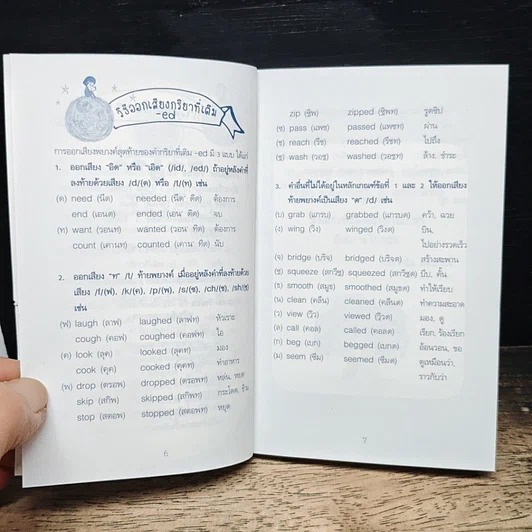 วิธีออกเสียงกริยาที่เติม
-ed
การออกเสียงพยางค์สุดท้ายของคำกริยาที่เติม -ed มี 3 แบบ ได้แก่
1. ออกเสียง "อิด" หรือ "เอ็ด" (/id/, /ed/) ถ้าอยู่หลังคำที่
ลงท้ายด้วยเสียง /d/(ด) หรือ /t/(ท) เช่น
(ด) need (นีด) needed (นีด' ดิด) ต้องการ
end (เอนด) ended (เอน' ดิด) จบ
(ท) want (วอนท) wanted (วอน' ทิด) ต้องการ
count (เคานท) counted (เคาน' ทิด) นับ
2. ออกเสียง "ท" /t/ ท้ายพยางค์ เมื่ออยู่หลังคำที่ลงท้ายด้วย
เสียง /f/(ฟ), /k/(ค), /p/(พ), /s/(ซ), /ch/(ช), /sh/(ช)
เช่น
(ฟ) laugh (ลาฟ) laughed (ลาฟท) หัวเราะ
cough (คอฟ) coughed (คอฟท) ไอ
(ค) look (ลุค) looked (ลุคท) มอง
cook (คุค) cooked (คุคท) ทำอาหาร
(พ) drop (ดรอพ) dropped (ดรอพท) หล่น, หยด
skip (สกิพ) skipped (สกิพท) กระโดด, ข้าม
stop (สตอพ) stopped (สตอพท) หยุด
6
zip (ซิพ) zipped (ซิพท) รูดซิป
(ซ) pass (แพซ) passed (แพซท) ผ่าน
(ช) reach (รีช) reached (รีชท) ไปถึง
(ช) wash (วอช) washed (วอชท) ล้าง, ชำระ
3. คำอื่นที่ไม่ได้อยู่ในหลักเกณฑ์ข้อที่ 1 และ 2 ให้ออกเสียง
ท้ายพยางค์เป็นเสียง "ด" /d/ เช่น
(บ) grab (แกรบ) grabbed (แกรบด) คว้า, ฉวย
(ง) wing (วิง) winged (วิงด) บิน,
ไปอย่างรวดเร็ว
(จ) bridge (บริจ) bridged (บริจด) สร้างสะพาน
(ซ) squeeze (สกวีซ) squeezed (สกวีซด) บีบ, คั้น
(ธ) smooth (สมูธ) smoothed (สมูธด) ทำให้เรียบ
(น) clean (คลีน) cleaned (คลีนด) ทำความสะอาด
(ว) view (วิว) viewed (วิวด) มอง, ดู
(ล) call (คอล) called (คอลด) เรียก, ร้องเรียก
(ก) beg (เบก) begged (เบกด) อ้อนวอน, ขอ
(ม) seem (ซีม) seemed (ซีมด) ดูเหมือนว่า,
ราวกับว่า
7